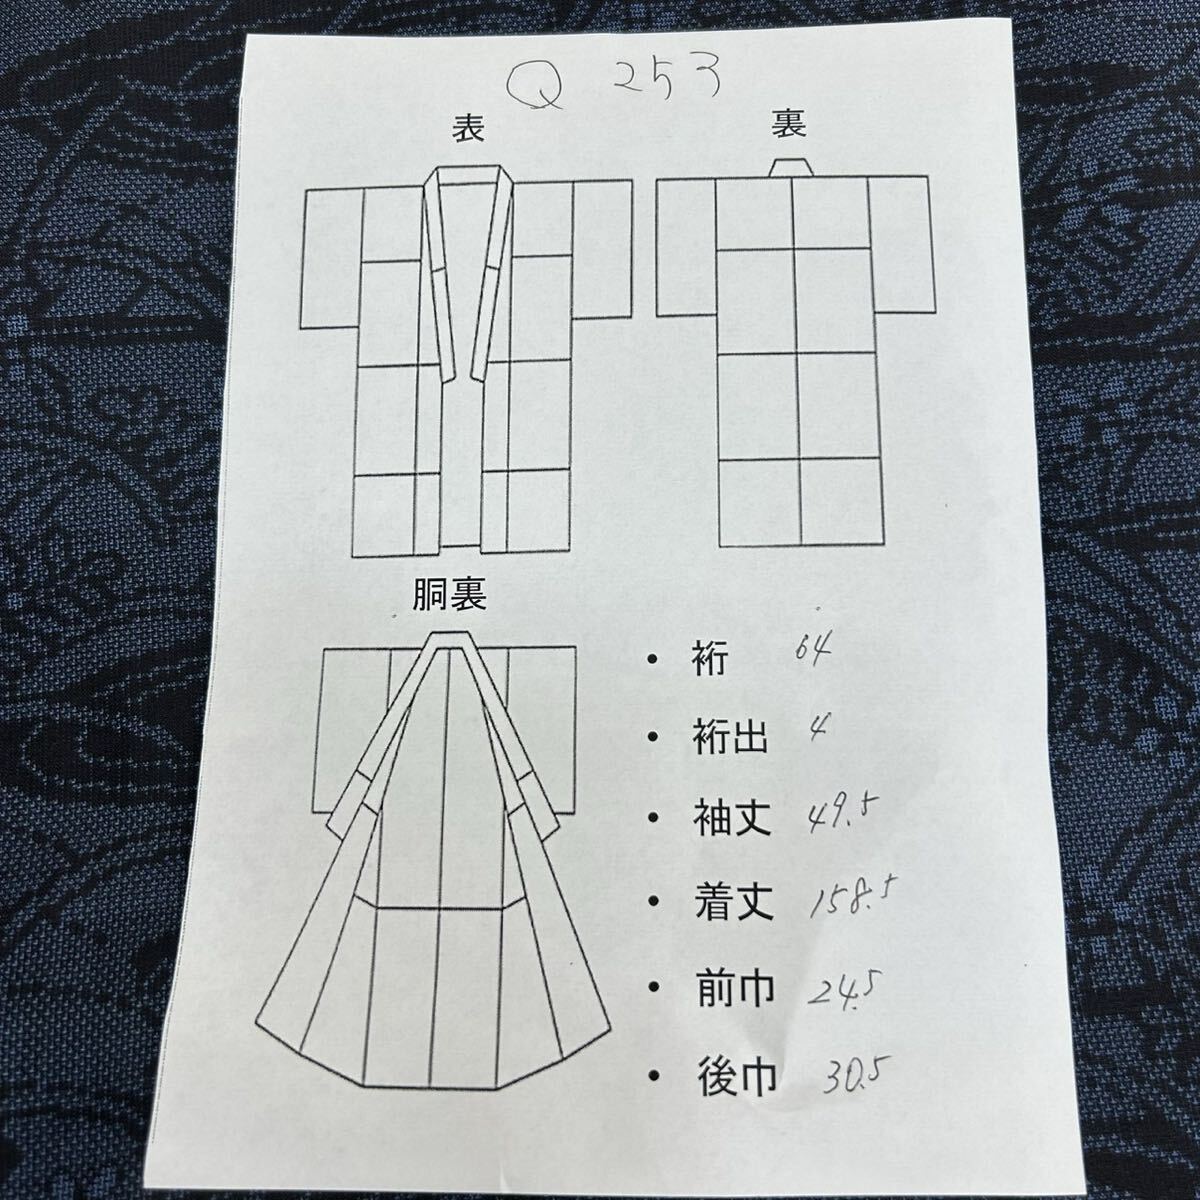 Q 253
表
裏
胴裏
・裄 64
・裄出 4
・袖丈 49.5
・着丈 158.5
・前巾 24.5
・後巾 30.5